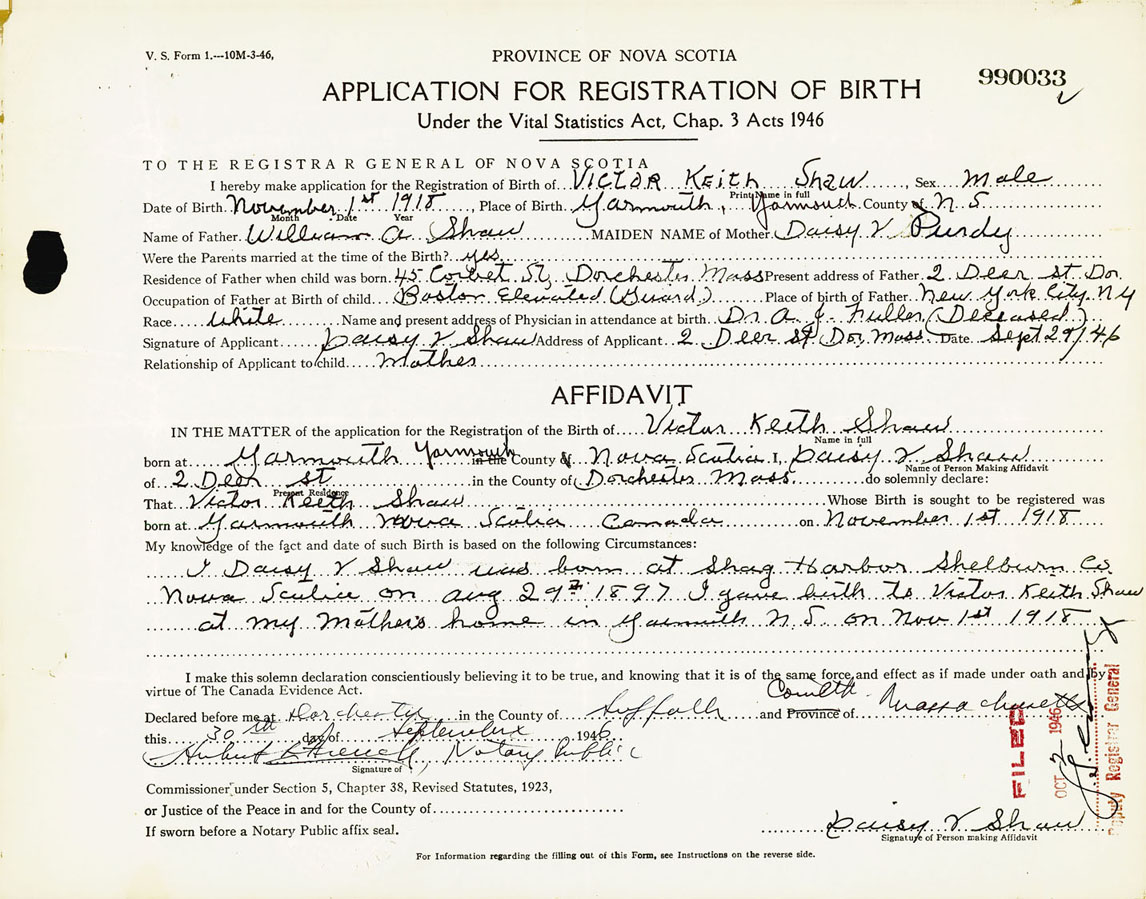 V. S. Form 1.---10M-3-46,
PROVINCE OF NOVA SCOTIA
990033
APPLICATION FOR REGISTRATION OF BIRTH
Under the Vital Statistics Act, Chap. 3 Acts 1946
TO THE REGISTRAR GENERAL OF NOVA SCOTIA
I hereby make application for the Registration of Birth of VICTOR Keith Shaw, Sex Male
Print Name in full
Date of Birth November 1st 1918, Place of Birth Yarmouth, Yarmouth County of N S
Month Date Year
Name of Father William A Shaw MAIDEN NAME of Mother Daisy V Purdy
Were the Parents married at the time of the Birth? yes
Residence of Father when child was born 45 Corbet St, Dorchester Mass Present address of Father 2 Deer St Dor.
Occupation of Father at Birth of child Boston Elevated (Guard) Place of birth of Father New York City. NY
Race White Name and present address of Physician in attendance at birth Dr. A. J. Fuller (Deceased)
Signature of Applicant Daisy V Shaw Address of Applicant 2 Deer St Dor. Mass. Date Sept 29/46
Relationship of Applicant to child Mother
AFFIDAVIT
IN THE MATTER of the application for the Registration of the Birth of Victor Keith Shaw
Name in full
born at Yarmouth Yarmouth in the County of Nova Scotia I, Daisy V Shaw
Name of Person Making Affidavit
of 2 Deer St in the County of Dorchester Mass. do solemnly declare:
Present Residence
That Victor Keith Shaw Whose Birth is sought to be registered was
born at Yarmouth Nova Scotia Canada on November 1st 1918
My knowledge of the fact and date of such Birth is based on the following Circumstances:
I Daisy V Shaw was born at Shag Harbor Shelburn Co
Nova Scotia on Aug 29th 1897 I gave birth to Victor Keith Shaw
at my Mother's home in Yarmouth N. S. on Nov 1st 1918
I make this solemn declaration conscientiously believing it to be true, and knowing that it is of the same force and effect as if made under oath and by
virtue of The Canada Evidence Act.
Declared before me at Dorchester in the County of Suffolk and Province Comwlth of Massachusetts
this 30th day of September 1946
Notary Public
Signature of
Commissioner under Section 5, Chapter 38, Revised Statutes, 1923,
or Justice of the Peace in and for the County of
If sworn before a Notary Public affix seal.
FILED
OCT 2 1946
Deputy Registrar General
Daisy V Shaw
Signature of Person making Affidavit
For Information regarding the filling out of this Form, see Instructions on the reverse side.